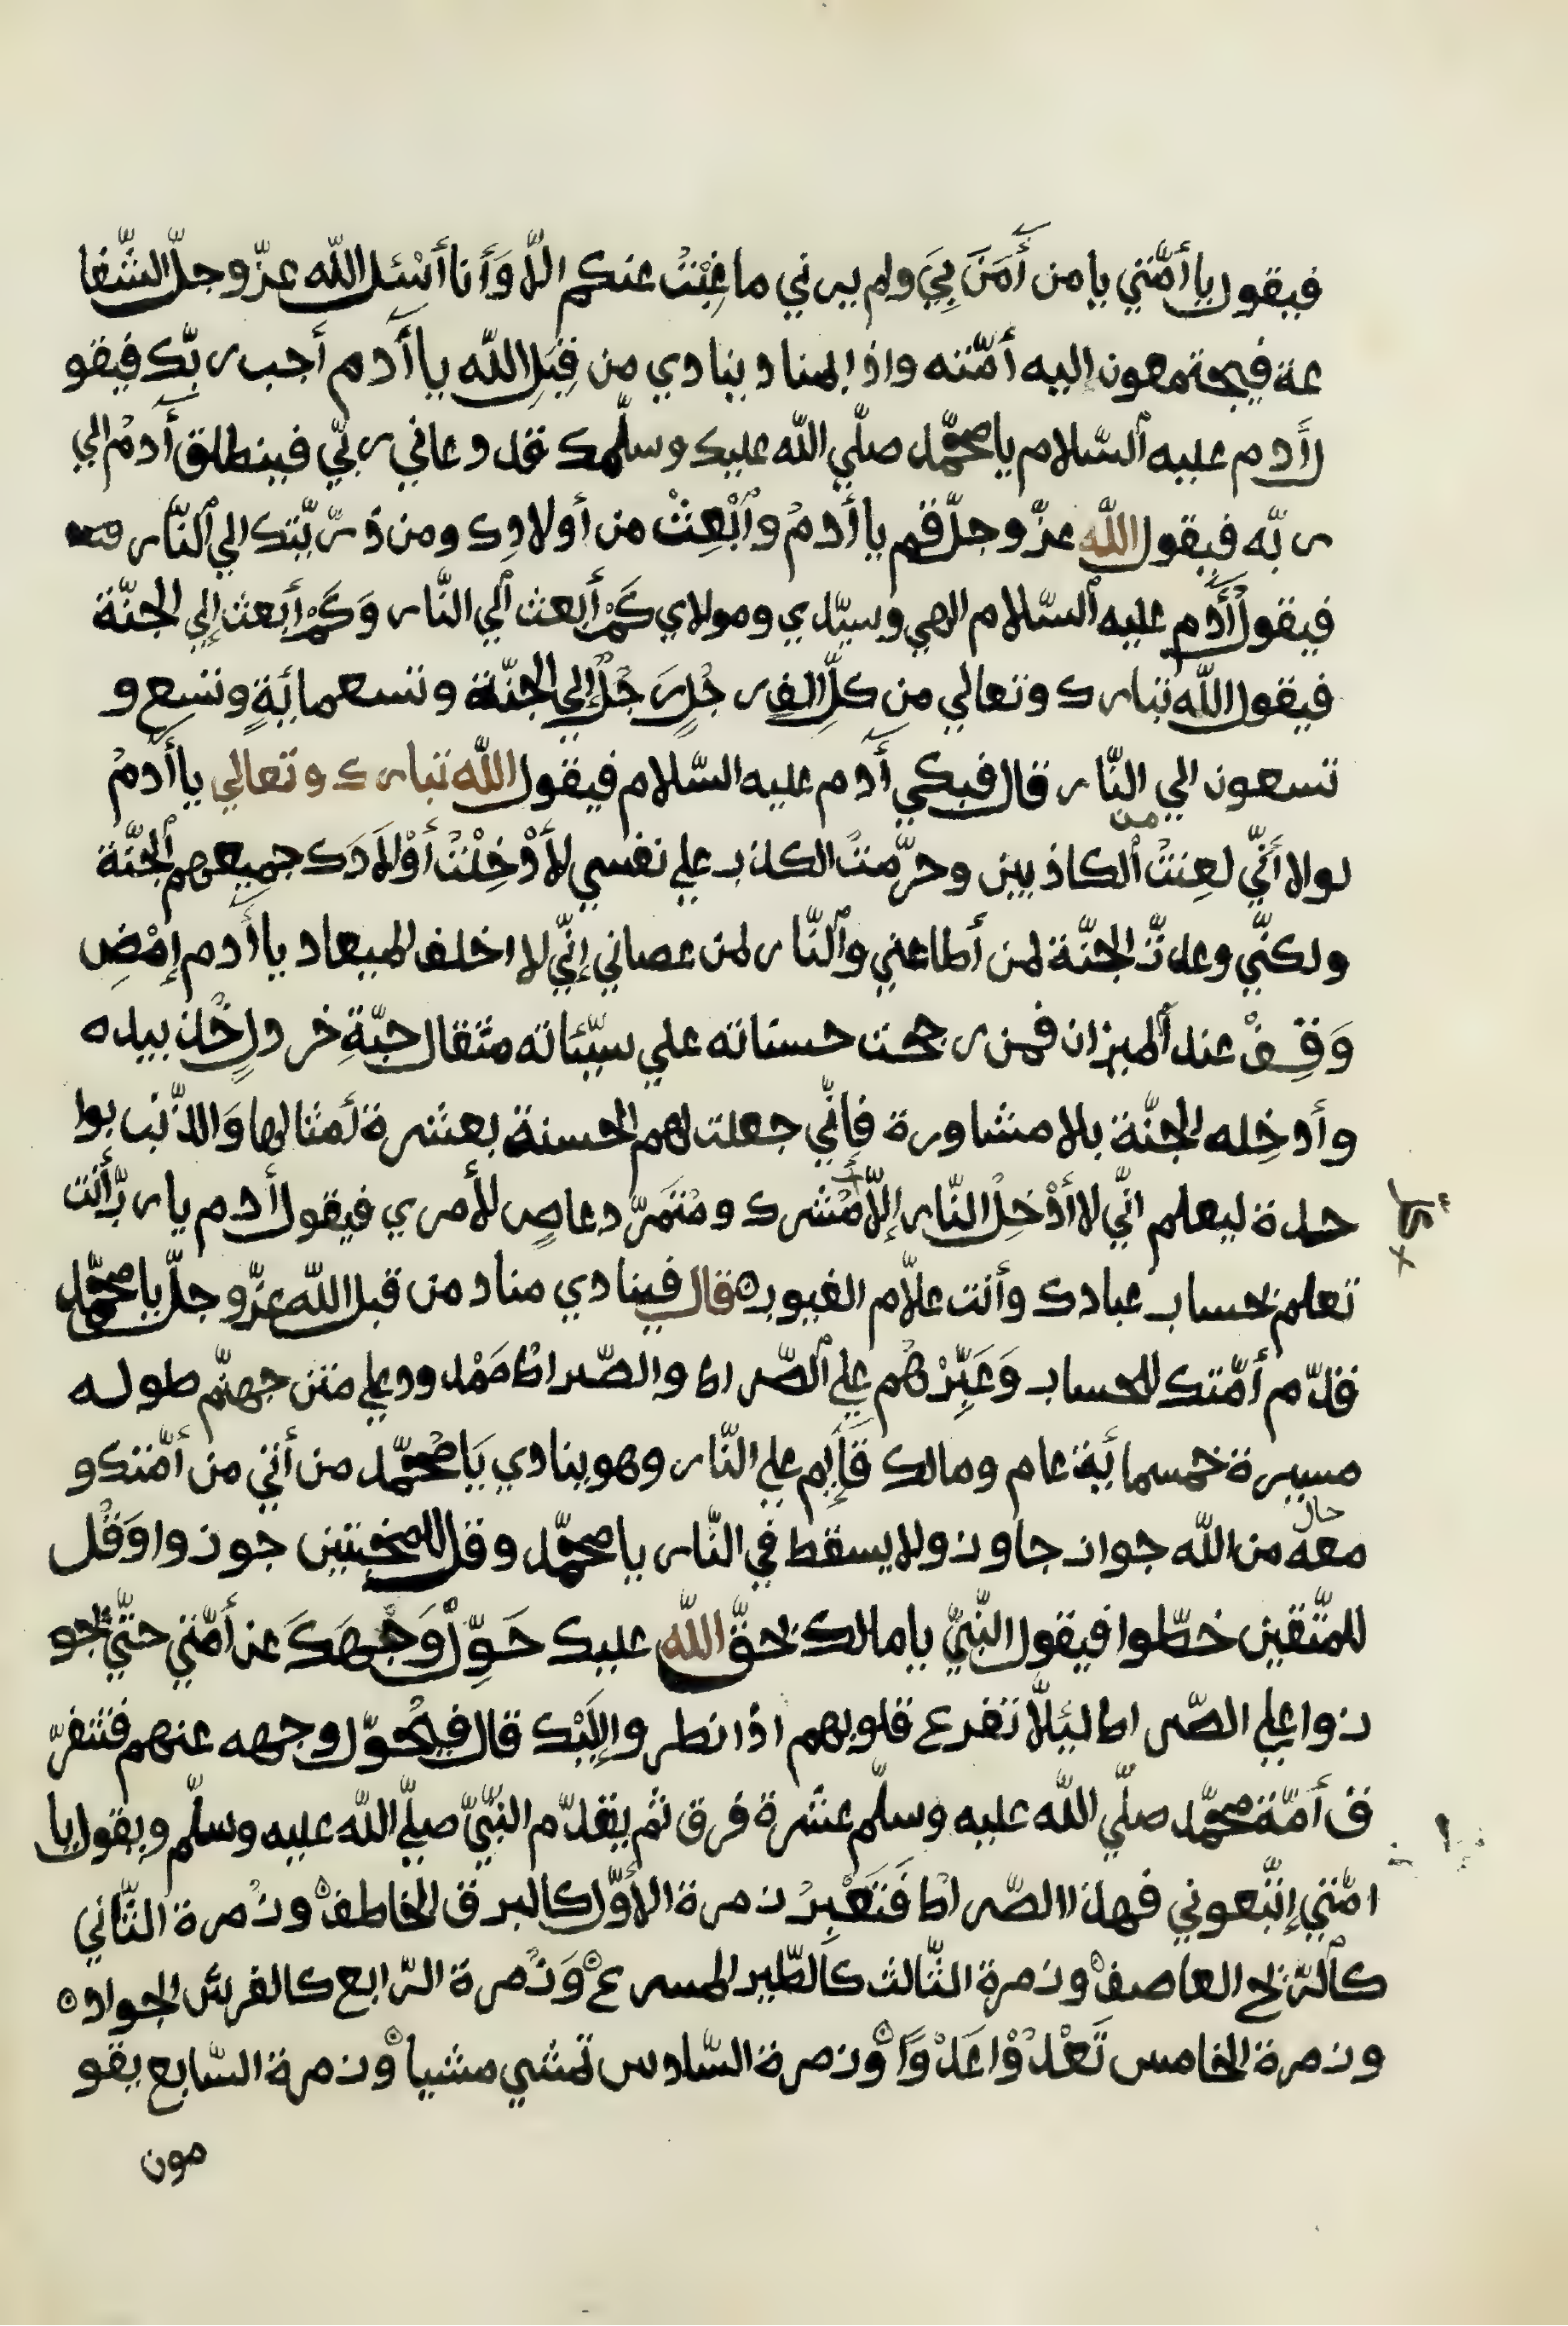 فيقول يا أمّتي يا من أَمَنَ بِيَ ولم يرني ما غِبْتُ عنكم الاّ وَأنا أسْئل الله عزّ وجلّ الشّفا
عة فيجتمعون إليه أمّته واذا المناد ينادي من قِبَلِ الله يا أدم أجب ربّك فيقو
ل أدم عليه السّلام يا محمّد صلّي الله عليك وسلّمك قد دعاني ربّي فينطلق أدمُ الي
ربّه فيقول الله عزّ وجلّ قم يا أدمُ وٱبْعِثْ من أولادِك ومن ذرّيّتك الي ٱلنّار
فيقول أدم عليه ٱلسّلام الهي وسيّدي ومولاي كَمْ أبعث الي النّار وَكَمْ أبعث إلي الجنّة
فيقول الله تبارك وتعالي من كلّ الف رجُلٍ رَجُلٌ إلي الجنّة وتسعمائةٍ وتسع و
تسعون الي النّار قال فبكي أدم عليه السّلام فيقول الله تبارك وتعالي يا أدمُ
لولا أنّي لعِنتُ من ٱلكاذبين وحرّمتُ الكذب علي نفسي لأدْخِلْتُ أوْلاَدَك جميعهم ٱلجنّة
ولكنّي وعدتّ الجنّة لمن أطاعني وٱلنّار لمن عصاني إنّي لا اخلف الميعاد يا أدم إمْضِ
وَقِفْ عند ٱلميزان فمن رجحت حسناته علي سيّئاته مثقال حبّةِ خردلٍ خُذ بيده
وأدخِله الجنّة بلا مشاورة فإنّي جعلت لهم الحسنة بعشرة أمثالها وَالذّنب بوا
حدة ليعلم انّي لا أدْخِلُ النّار إلاّ مُشرك ومُتَمَرّد عاصٍ لأمري فيقول أدم يا ربّ أنت
تعلم بحساب عبادك وأنت علاّم الغيوب ۞ قال فينادي مناد من قبل الله عزّ وجلّ يا محمّد
قدّم أمّتك للحساب وَعَبِّرْهُم علي ٱلصّراط والصّراطُ مَمْدودٌ علي متن جهنّم طوله
مسيرة خمسمائة عام ومالك قَائِم علي النّار وهو ينادي يَا مُحمّد من أتي من أمّتك و
معه حال من الله جواز جاوز ولا يسقط في النّار يا محمّد وقل للمخبتين جوزوا وَقُل
للمتّقين خطّوا فيقول النّبيّ يا مالك بحقّ الله عليك حَوِّلْ وَجْهَكَ عن أمّتي حتّي يجو
زوا علي الصّراط لئلاّ تفزع قلوبهم اذا نظروا إلَيْك قال فيُحوّل وجهه عنهم فتفرّ
ق أمّة محمّد صلّي الله عليه وسلّم عشرة فرق ثم يقدّم النّبيّ صلّي الله عليه وسلّم ويقول يا
امّتي إتّبعوني فهذا الصّراطُ فَتَعْبِرُ زمرة الأوّل كالبرق الخاطف ۞ وزُمرة الثّاني
كٱلرّيح العاصف ۞ وزمرة الثّالث كالطّير المسرع ۞ وَزُمرة الرّابع كالفرس الجواد ۞
وزمرة الخامس تَعْدُوْا عَدْوًا ۞ وزمرة السّادس تمشي مشيا ۞ وزمرة السّابع يقو
مون